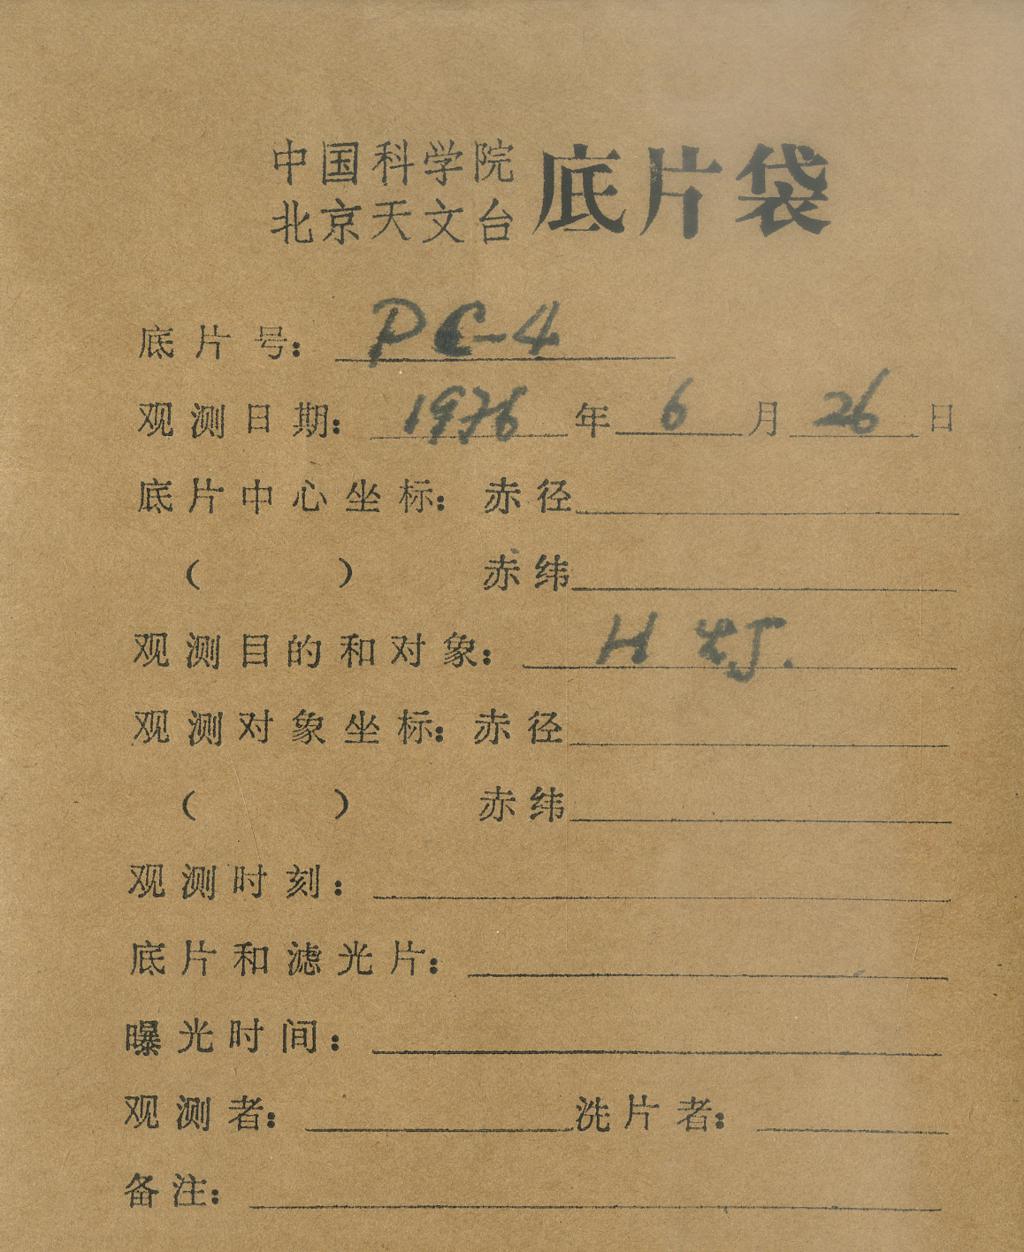 中国科学院
北京天文台 底片袋
底片号: PC-4
观测日期: 1976年6月26日
底片中心坐标: 赤径
( ) 赤纬
观测目的和对象: H灯.
观测对象坐标: 赤径
( ) 赤纬
观测时刻:
底片和滤光片:
曝光时间:
观测者: 洗片者:
备注: